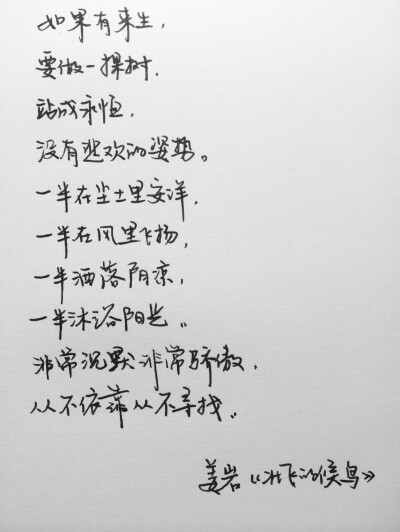 如果有来生,
要做一棵树,
站成永恒,
没有悲欢的姿势。
一半在尘土里安洋,
一半在风里飞扬,
一半洒落阴凉,
一半沐浴阳光。
非常沉默非常骄傲,
从不依靠从不寻找。
姜岩《北飞的候鸟》